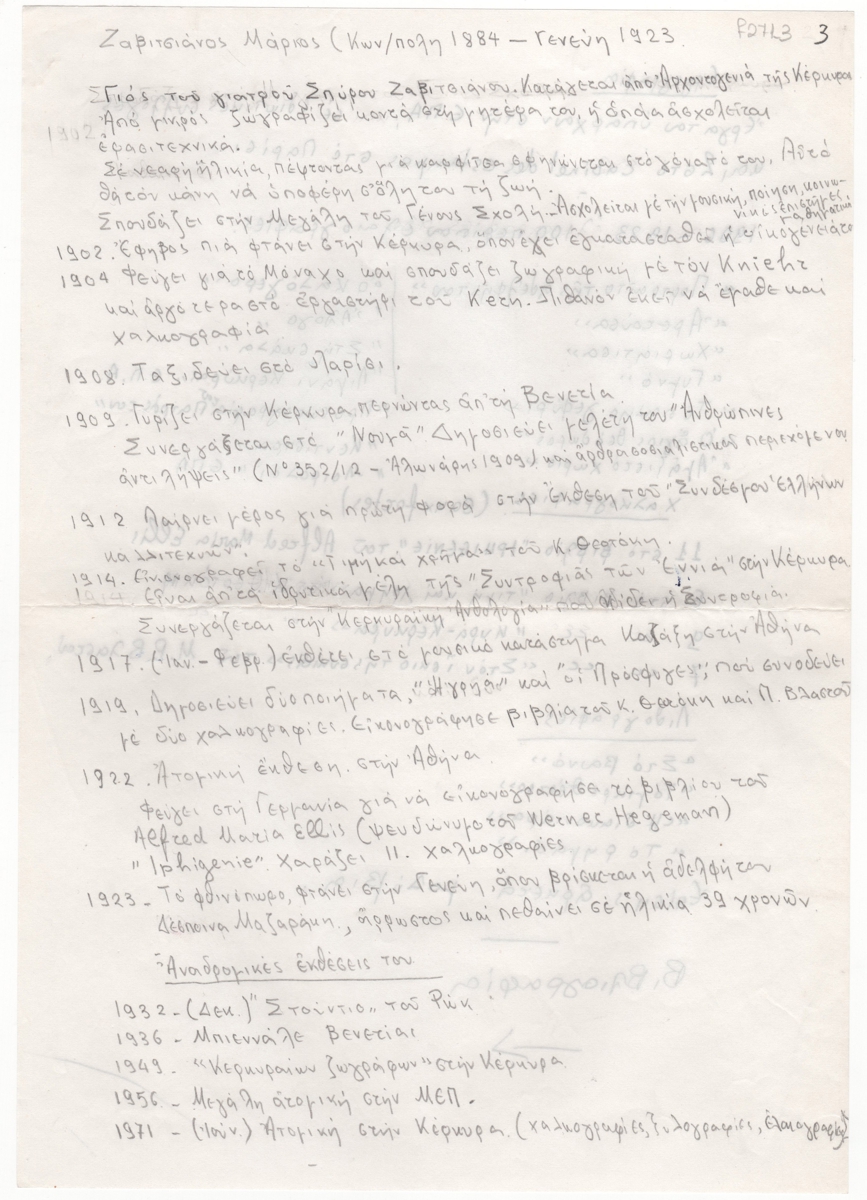 Ζαβιτσιάνος Μάρκος (Κων/πολη 1884 – Γενεύη 1923
F27L3 3
Γιός τοῦ γιατροῦ Σπύρου Ζαβιτσιάνου. Κατάγεται ἀπό Ἀρχοντογενιά τῆς Κέρκυρας
Ἀπό μικρός ζωγραφίζει κοντά στή μητέρα του, ἡ ὁποία ἀσχολεῖται
ἐρασιτεχνικά.
Σέ νεαρή ἡλικία, πέφτοντας μιά καρφίτσα σφηνώνεται στό γόνατό του. Αὐτό
θά τόν κάνη νά ὑποφέρη σ' ὅλη του τή ζωή.
Σπουδάζει στήν Μεγάλη τοῦ Γένους Σχολή. – Ἀσχολεῖται μέ τήν μουσική, ποίηση, κοινω-
νικές ἐπιστῆμες
μαθηματικά
1902. Ἔφηβος πιά φτάνει στήν Κέρκυρα, ὅπου ἔχει ἐγκατασταθεῖ ἡ οἰκογένειά του
1904 Φεύγει γιά τό Μόναχο καί σπουδάζει ζωγραφική μέ τόν Kniehr
καί ἀργότερα στό ἐργαστήρι τοῦ Kern. Πιθανόν ἐκεῖ νά ἔμαθε καί
χαλκογραφία
1908. Ταξιδεύει στό Παρίσι.
1909. Γυρίζει στήν Κέρκυρα περνώντας ἀπ' τή Βενετία.
Συνεργάζεται στό "Νουμᾶ" Δημοσιεύει μελέτη του "Ἀνθρώπινες
ἀντιλήψεις" (Νο 352/12 – Ἁλωνάρης 1909) καί ἄρθρα σοσιαλιστικοῦ περιεχόμενου
1912 Παίρνει μέρος γιά πρώτη φορά στήν ἔκθεση τοῦ "Συνδέσμου Ἑλλήνων
καλλιτεχνῶν".
1914. Εἰκονογραφεῖ τό "Τιμή καί χρῆμα" τοῦ Κ. Θεοτόκη.
Εἶναι ἀπ' τά ἱδρυτικά μέλη τῆς "Συντροφιᾶς τῶν Ἐννιά" στήν Κέρκυρα
Συνεργάζεται στήν "Κερκυραϊκή Ἀνθολογία" πού ἐκδίδει ἡ Συντροφιά.
1917. (Ἰαν. – Φεβρ.) ἐκθέτει στό μουσικό κατάστημα Καζάζη στήν Ἀθήνα
1919. Δημοσιεύει δύο ποιήματα, "Ἡ γρηά" καί "οἱ Πρόσφυγες", πού συνοδεύει
μέ δύο χαλκογραφίες. Εἰκονογράφησε βιβλία τοῦ Κ. Θεοτόκη καί Π. Βλαστοῦ
1922. Ἀτομική ἔκθεση στήν Ἀθήνα.
Φεύγει στή Γερμανία γιά νά εἰκονογραφήσει τό βιβλίου τοῦ
Alfred Maria Ellis (ψευδώνυμο τοῦ Werner Hegeman)
"Iphigenie". Χαράζει 11. χαλκογραφίες
1923 – Τό φθινόπωρο, φτάνει στήν Γενεύη, ὅπου βρίσκεται ἡ ἀδελφή του
Δέσποινα Μαζαράκη, ἄρρωστος καί πεθαίνει σέ ἡλικία 39 χρονῶν.
Ἀναδρομικές ἐκθέσεις του
1932 – (Δεκ.) "Στούντιο" τοῦ Ρώκ.
1936 – Μπιεννάλε Βενετίας
1949 – "Κερκυραίων ζωγράφων" στήν Κέρκυρα
1956 – Μεγάλη ἀτομική στήν ΜΕΠ.
1971 – (Ἰούν.) Ἀτομική στήν Κέρκυρα. (χαλκογραφίες, ξυλογραφίες, ἐλαιογραφίες)